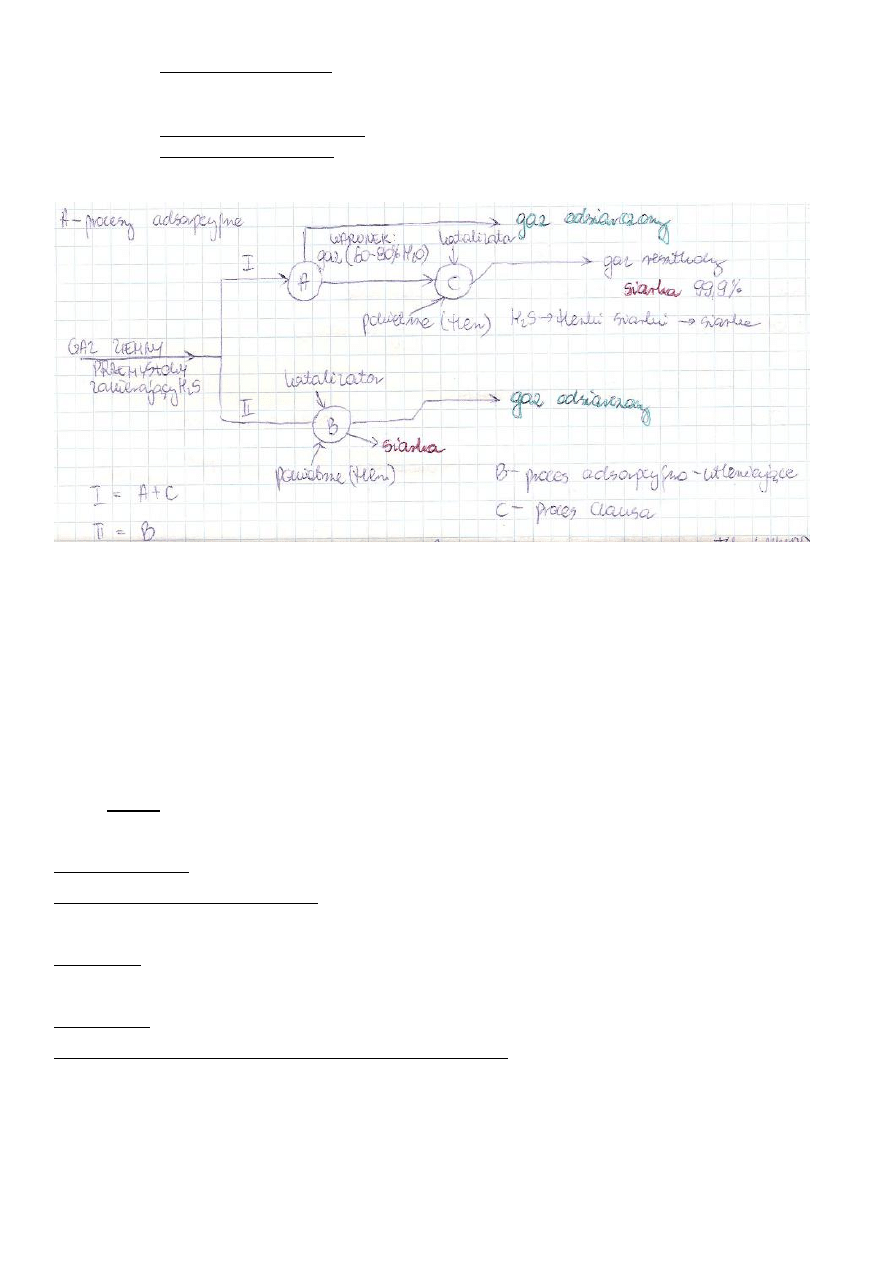 A - procesy adsorpcyjne
gaz odsiarczony
WARUNEK:
katalizator
I
gaz (60-80% H2O)
gaz resztkowy
A
C
siarka 99,9%
powietrze (tlen)
H2S → tlenki siarki → siarka
GAZ ZIEMNY
PRZEMYSŁOWY
zawierający H2S
katalizator
gaz odsiarczony
II
B
siarka
powietrze (tlen)
B - proces adsorpcyjno-utleniające
I = A+C
C - proces Clausa
II = B